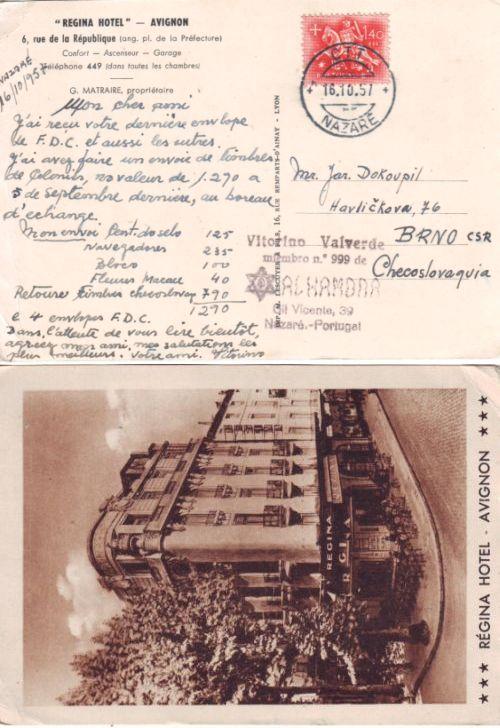 "REGINA HOTEL" — AVIGNON
6, rue de la République (ang. pl. de la Préfecture)
Confort — Ascenseur — Garage
Téléphone 449 (dans toutes les chambres)
G. MATRAIRE, propriétaire
NAZARÉ
16/10/957
Mon cher ami
J'ai reçu votre dernière envelope
de F.D.C. et aussi les autres.
J'ai avez faire un envoie de timbres
de Colonils, no valeur de 1.290 a
5 de Septembre dernière, au boreau
d'echange.
Mon envoi Cent. do selo 125
Navegadores 235
Bloco 100
Fleurs Macau 40
Retour timbres checoslovaq 790
1290
e 4 envelopes F.D.C.
Dans l'attente de vous lire bientôt,
agréez mon ami, mes salutations les
plus meilleurs. Votre ami. Vitorino
16, RUE REMPARTS-D'AINAY - LYON
CTT
1$40
16.10.57
NAZARÉ
Mr. Jar. Dokoupil
Havličkova, 76
BRNO ČSR
Checoslovaquia
Vitorino Valverde
membro n.º 999 de
ALHAMBRA
Gil Vicente, 39
Nazaré.-Portugal
REGINA
REGINA
★★★ RÉGINA HOTEL - AVIGNON ★★★